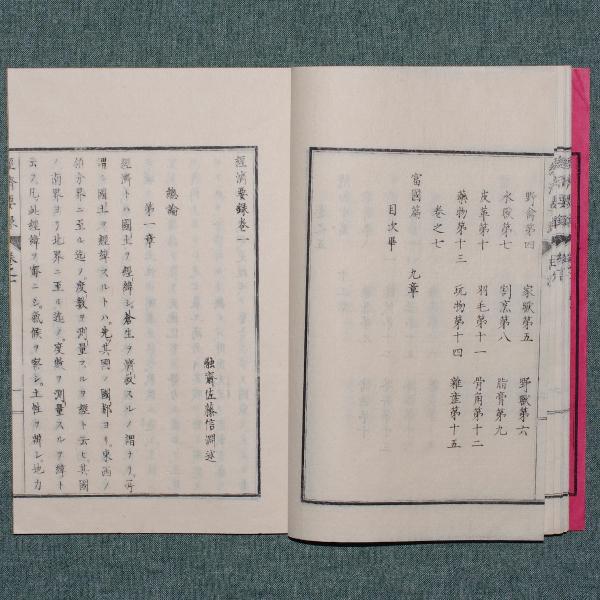 野禽第四 家獣第五 野獣第六
水獣第七 割烹第八 脂膏第九
皮革第十 羽毛第十一 骨角第十二
藥物第十三 玩物第十四 雜畫第十五
卷之七
富國篇 九章
目次畢
經濟要録卷一
融齋佐藤信淵述
總論
第一章
經濟トハ國土ヲ經緯シ蒼生ヲ濟救スルノ謂ナリ所
謂ル國土ヲ經緯スルトハ先其國ノ國都ヨリ東西ノ
領分界ニ至ル迄ノ度數ヲ測量スルヲ經ト云ヒ其國
ノ南界ヨリ北界ニ至ル迄ノ度數ヲ測量スルヲ緯ト
云ス凡此經緯ヲ審ニシ氣候ヲ察シ土性ヲ辨シ地力